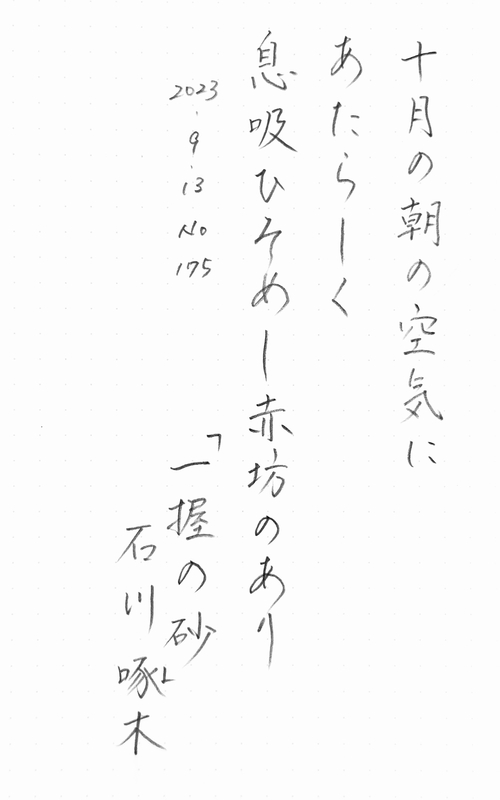 十月の朝の空気に
あたらしく
息吸ひそめし赤坊のあり
2023.9.13 No 175
「一握の砂」
石川啄木